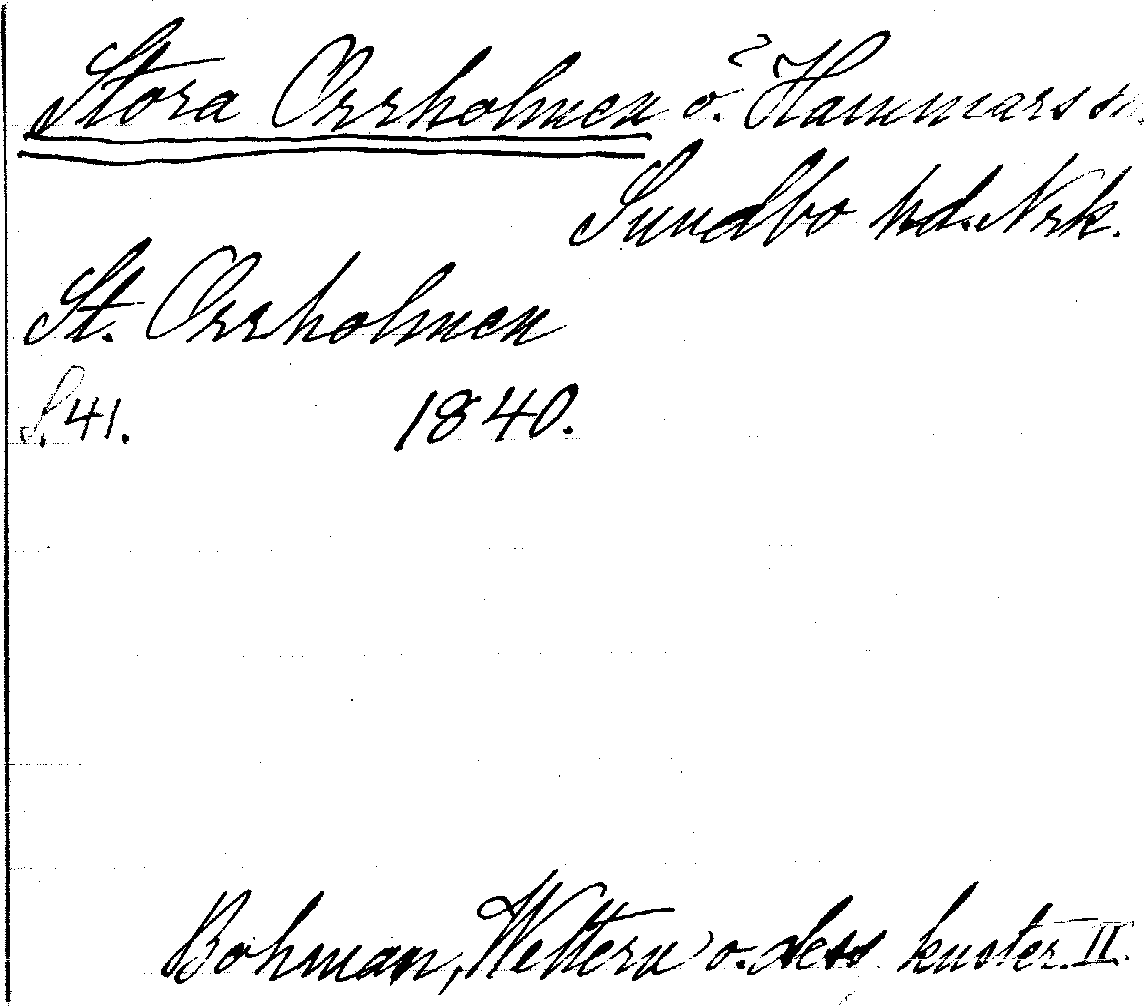 Stora Orrholmen ö. ? Hammars sn.
Sundbo hd. Nrk.
St. Orrholmen
S. 41. 1840.
Bohman, Wettern o. dess kuster. II.